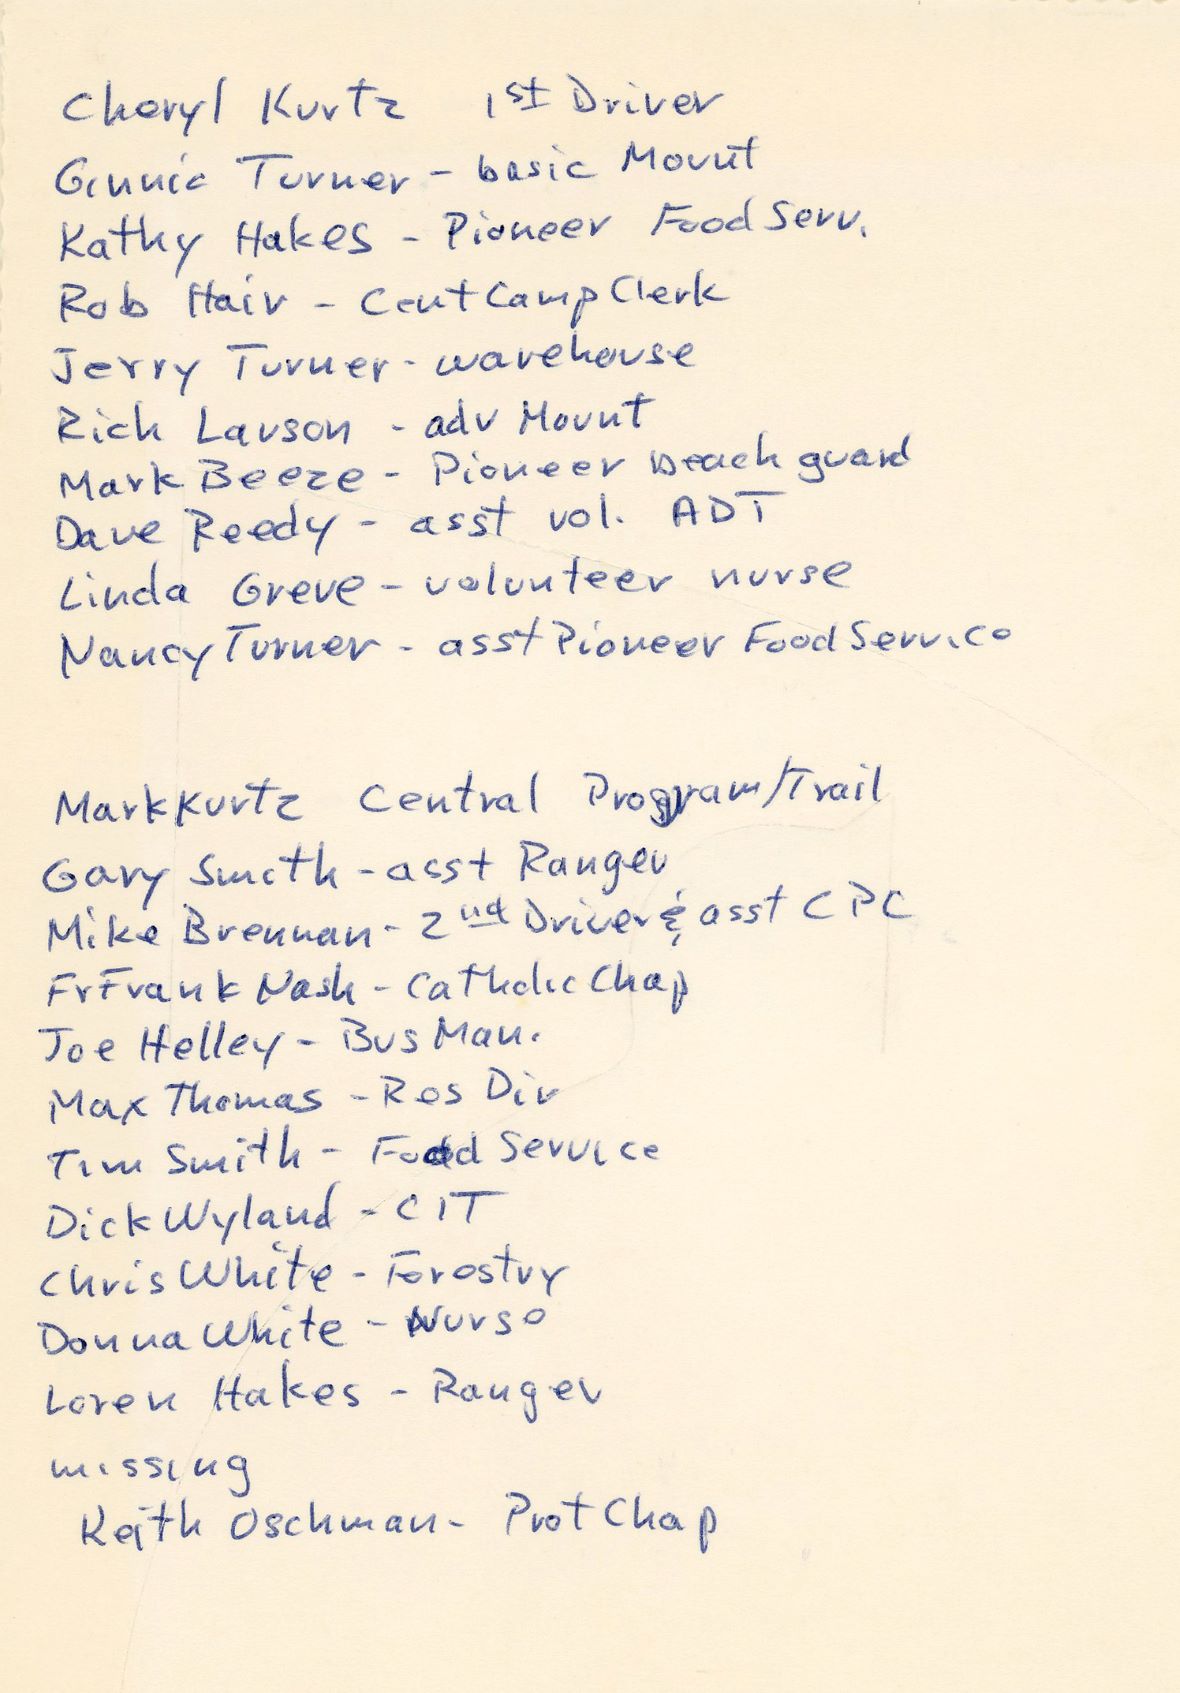 Cheryl Kurtz 1st Driver
Ginnie Turner - basic Mount
Kathy Hakes - Pioneer Food Serv.
Rob Hair - Cent Camp Clerk
Jerry Turner - warehouse
Rich Larson - adv Mount
Mark Beeze - Pioneer Beach guard
Dave Reedy - asst vol. ADT
Linda Greve - volunteer nurse
Nancy Turner - asst Pioneer Food Service
Mark Kurtz Central Program/Trail
Gary Smith - asst Ranger
Mike Brennan - 2nd Driver & asst CPC
Fr Frank Nash - Catholic Chap
Joe Helley - Bus Man.
Max Thomas - Res Dir
Tim Smith - Food Service
Dick Wyland - CIT
Chris White - Forestry
Donna White - Nurse
Loren Hakes - Ranger
missing
Keith Oschman - Prot Chap